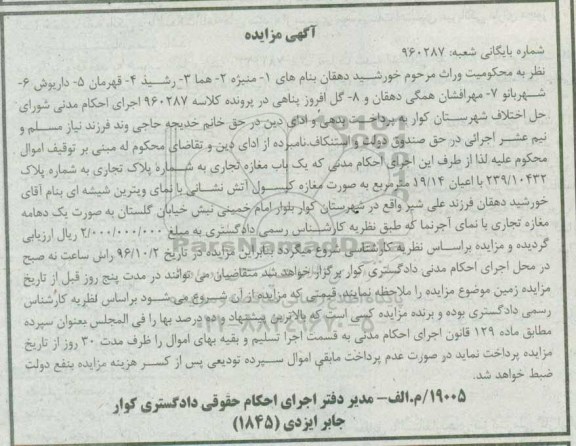 آگهی مزایده
شماره بایگانی شعبه: ۹۶۰۲۸۷
نظر به محکومیت وراث مرحوم خورشید دهقان بنام های ۱- منیژه ۲- هما ۳- رشید ۴- قهرمان ۵- داریوش ۶-
شهربانو ۷- مهرافشان همگی دهقان و ۸- گل افروز پناهی در پرونده کلاسه ۹۶۰۲۸۷ اجرای احکام مدنی شورای
حل اختلاف شهرستان کوار به پرداخت بدهی و ادای دین در حق خانم خدیجه حاجی وند فرزند نیاز مسلم و
نیم عشر اجرائی در حق صندوق دولت و استنکاف نامبرده از ادای دین و تقاضای محکوم له مبنی بر توقیف اموال
محکوم علیه لذا از طرف این اجرای احکام مدنی که یک باب مغازه تجاری به شماره پلاک تجاری به شماره پلاک
۲۳۹/۱۰۴۳۲ با اعیان ۱۹/۱۴ مترمربع به صورت مغازه کپسول آتش نشانی با نمای ویترین شیشه ای بنام آقای
خورشید دهقان فرزند علی شیر واقع در شهرستان کوار بلوار امام خمینی نبش خیابان گلستان به صورت یک دهامه
مغازه تجاری با نمای آجرنما که طبق نظریه کارشناس رسمی دادگستری به مبلغ ۲/۰۰۰/۰۰۰/۰۰۰ ریال ارزیابی
گردیده و مزایده براساس نظریه کارشناسی شروع میگردد بنابراین مزایده در تاریخ ۹۶/۱۰/۲ راس ساعت نه صبح
در محل اجرای احکام مدنی دادگستری کوار برگزار خواهد شد متقاضیان می توانند در مدت پنج روز قبل از تاریخ
مزایده زمین موضوع مزایده را ملاحظه نمایند، قیمتی که مزایده از آن شروع می شود براساس نظریه کارشناس
رسمی دادگستری بوده و برنده مزایده کسی است که بالاترین پیشنهاد و ده درصد بها را فی المجلس بعنوان سپرده
مطابق ماده ۱۲۹ قانون اجرای احکام مدنی به قسمت اجرا تسلیم و بقیه بهای اموال را ظرف مدت ۳۰ روز از تاریخ
مزایده پرداخت نماید در صورت عدم پرداخت مابقی اموال سپرده تودیعی پس از کسر هزینه مزایده بنفع دولت
ضبط خواهد شد.
۱۹۰۰۵/م.الف- مدیر دفتر اجرای احکام حقوقی دادگستری کوار
جابر ایزدی (۱۸۴۵)